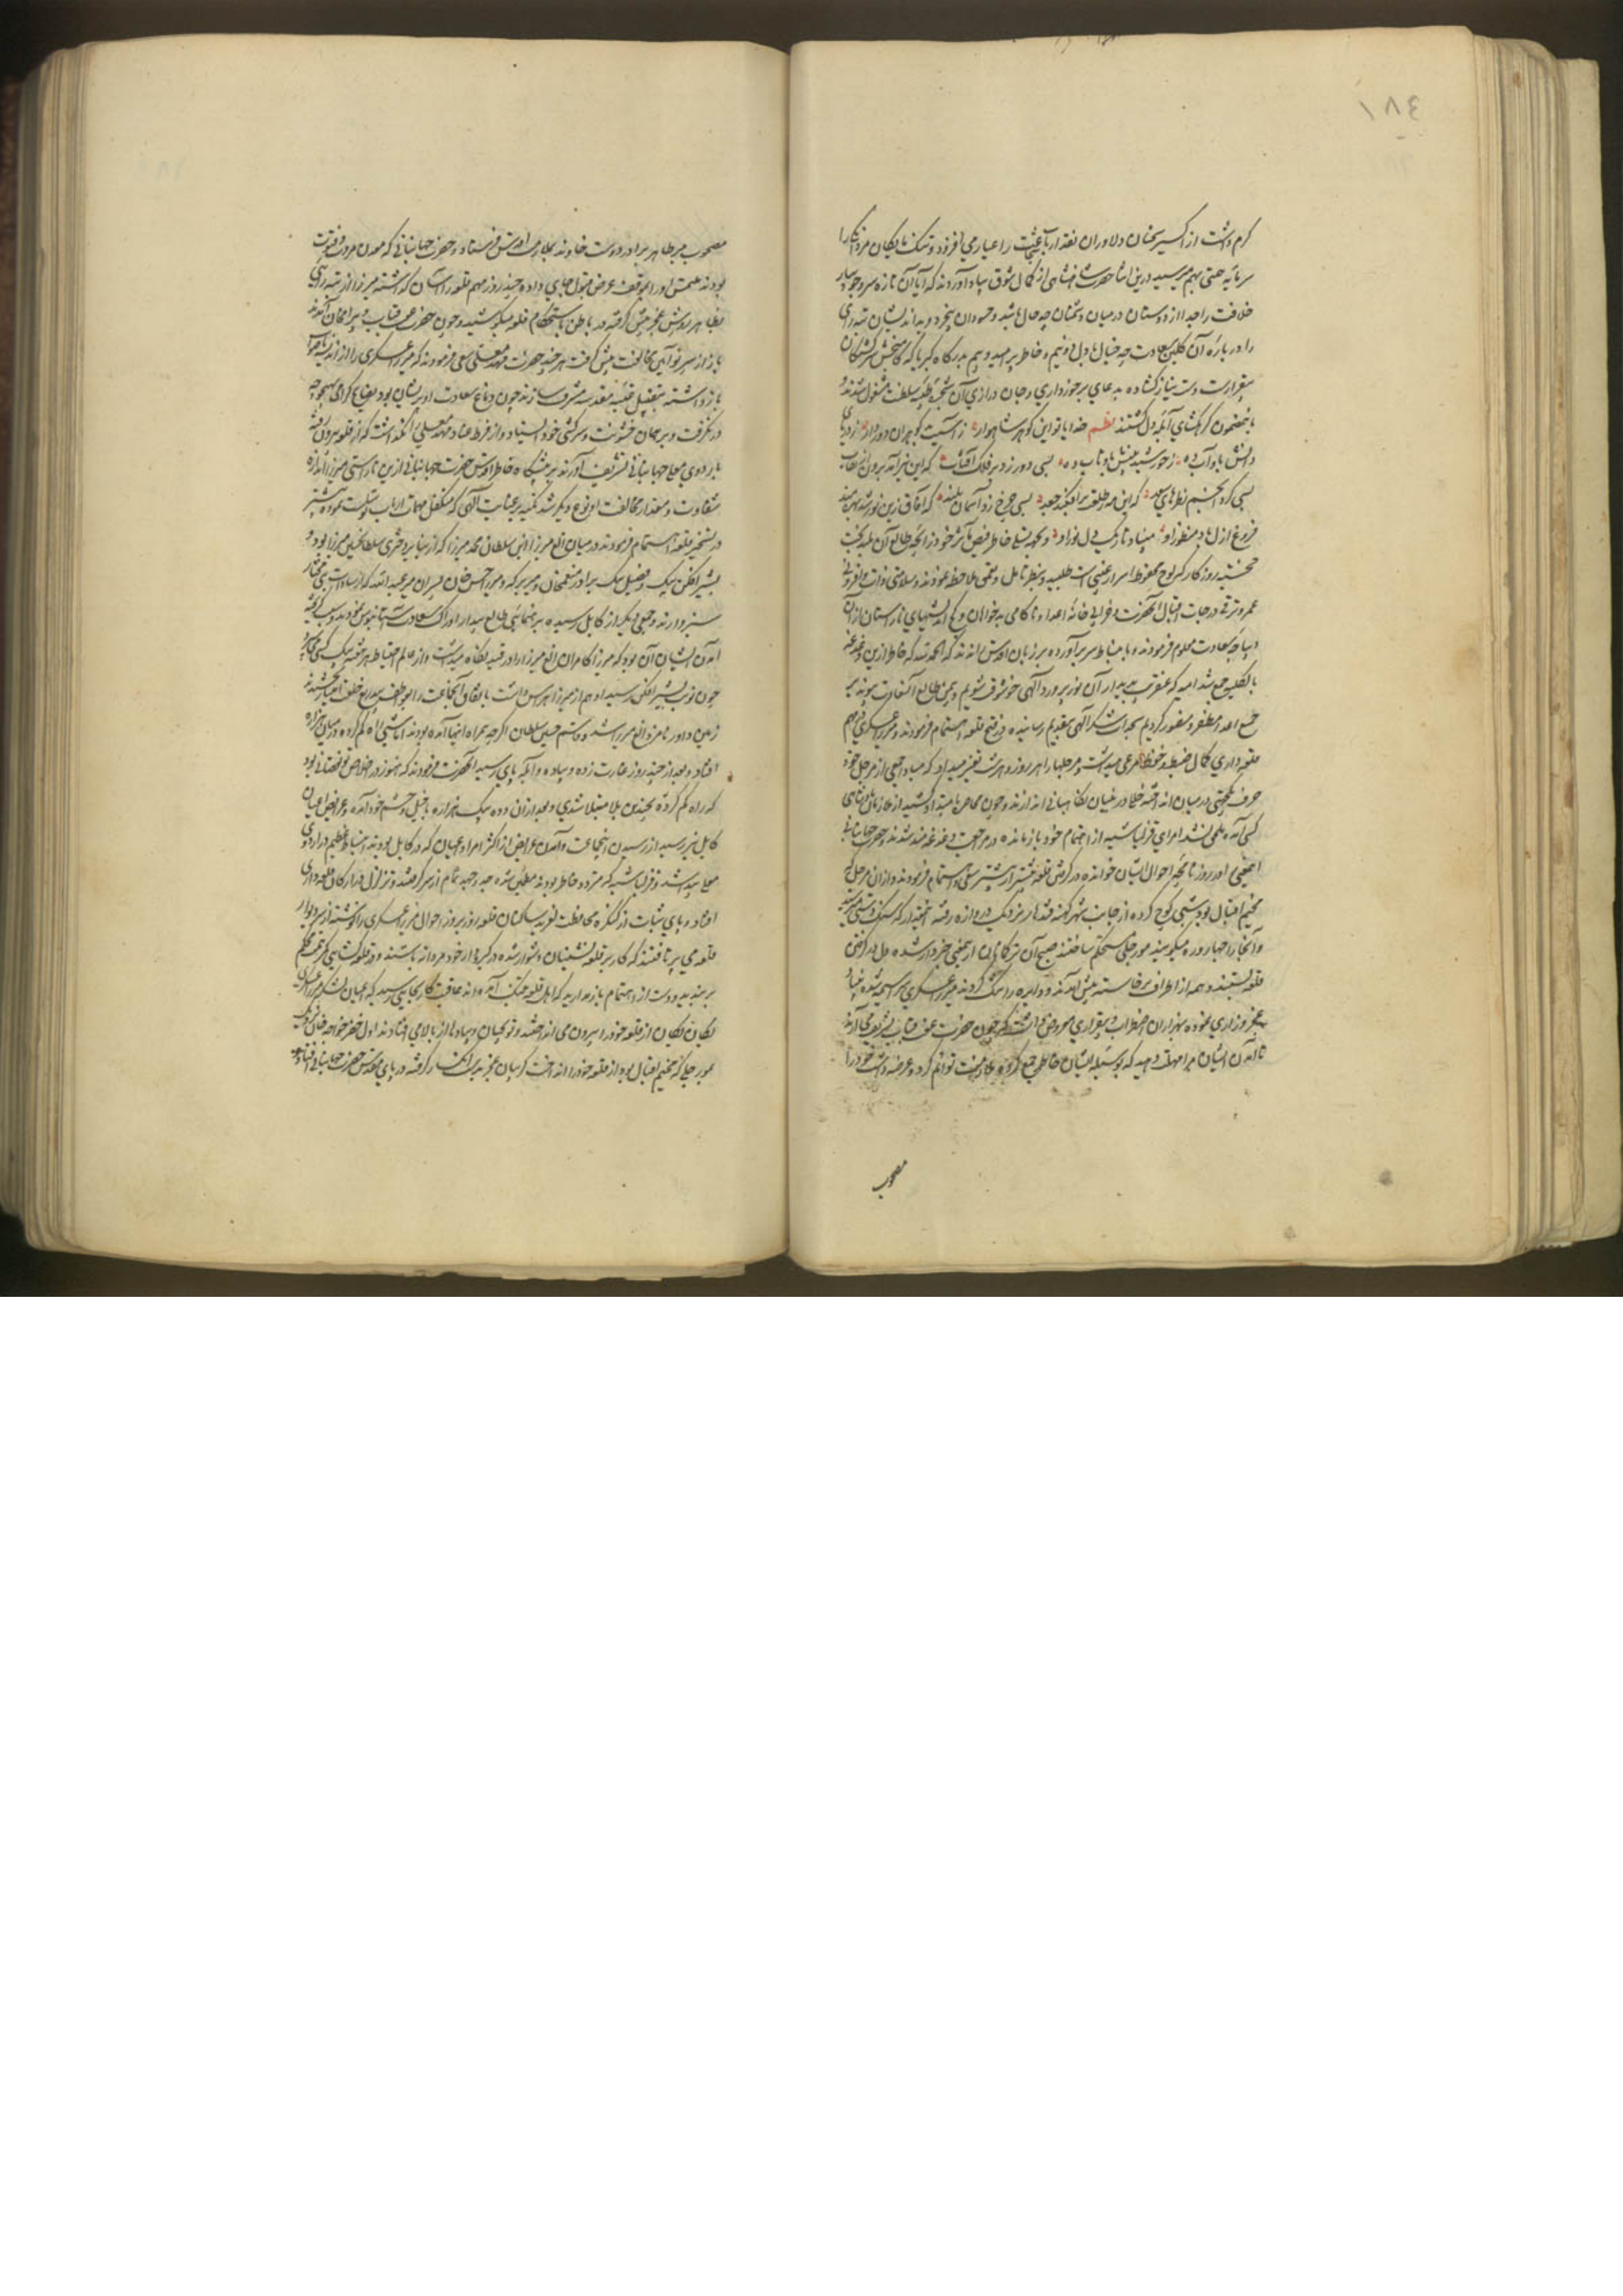 ١٨٤
کرم داشت از اکسیر سخنان دلاوران نقد ارباب شجاعت را عیار می افزود و تنک مایگان مردانگی را
سرمایه همتی بهم میرسید درین اثنا حضرت شاهنشاهی از کمال شوق بیاد آوردند که آیا آن تازه سرو جویبار
خلافت را جدا از دوستان در میان دشمنان چه حال باشد و حسودان بیخرد و بداندیشان تیره رای
را درباره آن گلبن سعادت چه خیال با دل دو نیم و خاطر پر امید و بیم بدرگاه کبریا که کام بخش سرگشتگان
بیقرارست دست نیاز گشاده بدعای برخورداری و جان درازی آن شجره طیبه سلطنت مشغول شدند و
باین مضمون گرهگشای آبله دل گشتند نظم خدایا تو این گوهر شاهوار ز آسیب گوهران دور دار ز دریای
دانش باو آب ده ز خورشید بینش باو تاب ده بسی دور زد بر فلک آفتاب که این نیر آمد برون از نقاب
بسی کرد انجم نظرهای سعد که این مه طلوع برافکند جعد بسی چرخ زد آسمان بلند که آفاق ازین نور شد بهره مند
فروغ ازل باد منظور او مبیناد تاریک دل نور او و بجهت تسلی خاطر فیض مآثر خود زایچه طالع آن طلیعه بخت
خجسته روزگار که لوح محفوظ اسرار غیبی است طلبیده و بنظر تامل و تعمق ملاحظه نمودند و سلامتی ذات و افزونی
عمر و ترقی درجات اقبال آنحضرت و خرابی خانه اعدا و ناکامی بدخواهان و کج اندیشیهای ناراستان از آن
دیباچه سعادت معلوم فرمودند و بانبساط سر برآورده بر زبان اقدس راندند که الحمد لله که خاطر ازین دغدغه
بالکلیه جمع شد امید که عنقریب بدیدار آن نور پرورد الهی خوشوقت شویم و بیمن طالع آن سعادت پیوند بر
جمیع اعدا مظفر و منصور گردیم سجدات شکر الهی بتقدیم رسانیده در فتح قلعه اهتمام فرمودند و میرزا عسکری هم
قلعه داری کمال ضبط و حفظ مرعی میداشت و مرحلها را هر روز و هر شب تغییر میداد که مبادا جمعی از مرحل خود
حرف یکجهتی در میان انداخته خللی در بنیان نگاهبانی اندازند و چون محاصره بامتداد کشید از ملازمان پادشاهی
کسی آمده ملحق نشد امرای قزلباشیه از اهتمام خود باز مانده در مراجعت دغدغه مند شدند و حضرت جهانبانی
اینمعنی از روزنامچه احوال ایشان خوانده در گرفتن قلعه بیشتر از پیشتر سعی و اهتمام فرمودند و از آن مرحل که
مخیم اقبال بود شبی کوچ کرده از جانب شهر کهنه قندهار نزدیک دروازه رفته
و آنجا را چهار دره میگویند مورچل مستحکم ساختند صبح آن ترکمانان ازینمعنی خبردار شده دل در گرفتن
قلعه بستند و همه از اطراف برخاسته پیش آمدند و دایره را تنگ گردند میرزا عسکری سراسیمه شده بنیاد
عجز و زاری نموده بهزاران اضطراب و بیقراری معروض داشت که چون حضرت عفت قباب تشریف می آرند
تا آمدن ایشان مرا مهلت دهید که بوسیله ایشان خاطر جمع کرده ملازمت توانم کرد و عرضه داشت خود را
مصحوب
مصحوب میر طاهر برادر خواجه دوست خاوند بملازمت اقدس فرستاد و حضرت جهانبانی که معدن مروت و فتوت
بودند ملتمس او را بموقف عرض قبول جای داده چند روز مهم قلعه را آسان گذاشتند میرزا از تیره رایی
بظاهر روش عجز پیش گرفته در باطن باستحکام قلعه میکوشید و چون حضرت عفت قباب و بیرام خان آمدند
باز از سر نو آیین مخالفت پیش گرفت هر چند حضرت مهد معلی سعی فرمودند که میرزا عسکری را از اندیشه ناصواب
باز داشته بتقبیل عتبه مقدسه مشرف سازند چون دماغ سعادت او پریشان بود نصایح گرامی بهیچوجه
در نگرفت و بر همان خشونت و سرکشی خود ایستاد و از فرط عناد مهد معلی را نگذاشت که از قلعه بیرون آمده
باردوی معلی جهانبانی تشریف آورند بر پیشگاه خاطر اقدس حضرت جهانبانی ازین ناراستی میرزا اندازه
شقاوت و مقدار مخالفت او نوع دیگر شد تکیه بر عنایت الهی که متکفل مهمات ارباب توکلست نموده بیشتر
در تسخیر قلعه اهتمام فرمودند در میان الغ میرزا ابن سلطان محمد میرزا که از نبایر دختری سلطان حسین میرزا بود و
شیر افکن بیک و فضیل بیک برادر منعم خان و میر برکه و میرزا حسن خان پسران میر عبدالله که از سادات بنی مختار
سبزوارند و جمعی دیگر از کابل رسیده برهنمائی طالع بیدار ادراک سعادت آستانبوس نمودند و سبب گریخته
آمدن ایشان آن بود که میرزا کامران الغ میرزا را در قید نگاه میداشت و از عالم احتیاط هر هفته بیک کسی می سپرد
چون نوبت بشیر افکن رسید او هم از میرزا هراس داشت باتفاق آنجماعت را
زمین داور نامزد الغ میرزا شد و قاسم حسین سلطان اگر چه همراه اینها آمده بودند اما شبی راه گم کرده در میان هزاره
افتاد و بعد از چند روز غارت زده و پیاده و آبله پای رسید آنحضرت فرمودند که هنوز در اخلاص تو نقصانی بود
که راه گم کرده بچندین بلا مبتلا شدی و بعد از آن دده بیک هزاره با خیل و حشم خود آمد و عرایض اعیان
کابل نیز رسید از رسیدن اینجماعت و آمدن عرایض از اکثر امرا و اعیان که در کابل بودند انبساط عظیم در اردوی
معلی پیدا شد و قزلباشیه که متردد خاطر بودند مطمئن شده جد و جهد تمام از سر گرفتند و تزلزل در ارکان قلعه داری
افتاد و پای ثبات از کنگره محافظت لغزید ساکنان قلعه روز بروز احوال میرزا عسکری را نوشته از سر دیوار
قلعه می پرتافتند که کار بر قلعه نشینان دشوار شده در گیرودار خود مردانه باشند و در قلعه گشایی کمر همت محکم
بر بندید و دست از اهتمام باز مدارید که اهل قلعه بتنگ آمده اند عاقبت کار بجایی رسید که اعیان لشکر میرزا عسکری
یگان یگان از قلعه خود را بیرون می انداختند و توپچیان و پیادها از بالا می افتادند اول خضر خواجه خان نزدیک
مورچلی که مخیم اقبال بود از قلعه خود را انداخت گریبان عجز بدست انکسار گرفته در پای مقدس حضرت جهانبانی افتاد